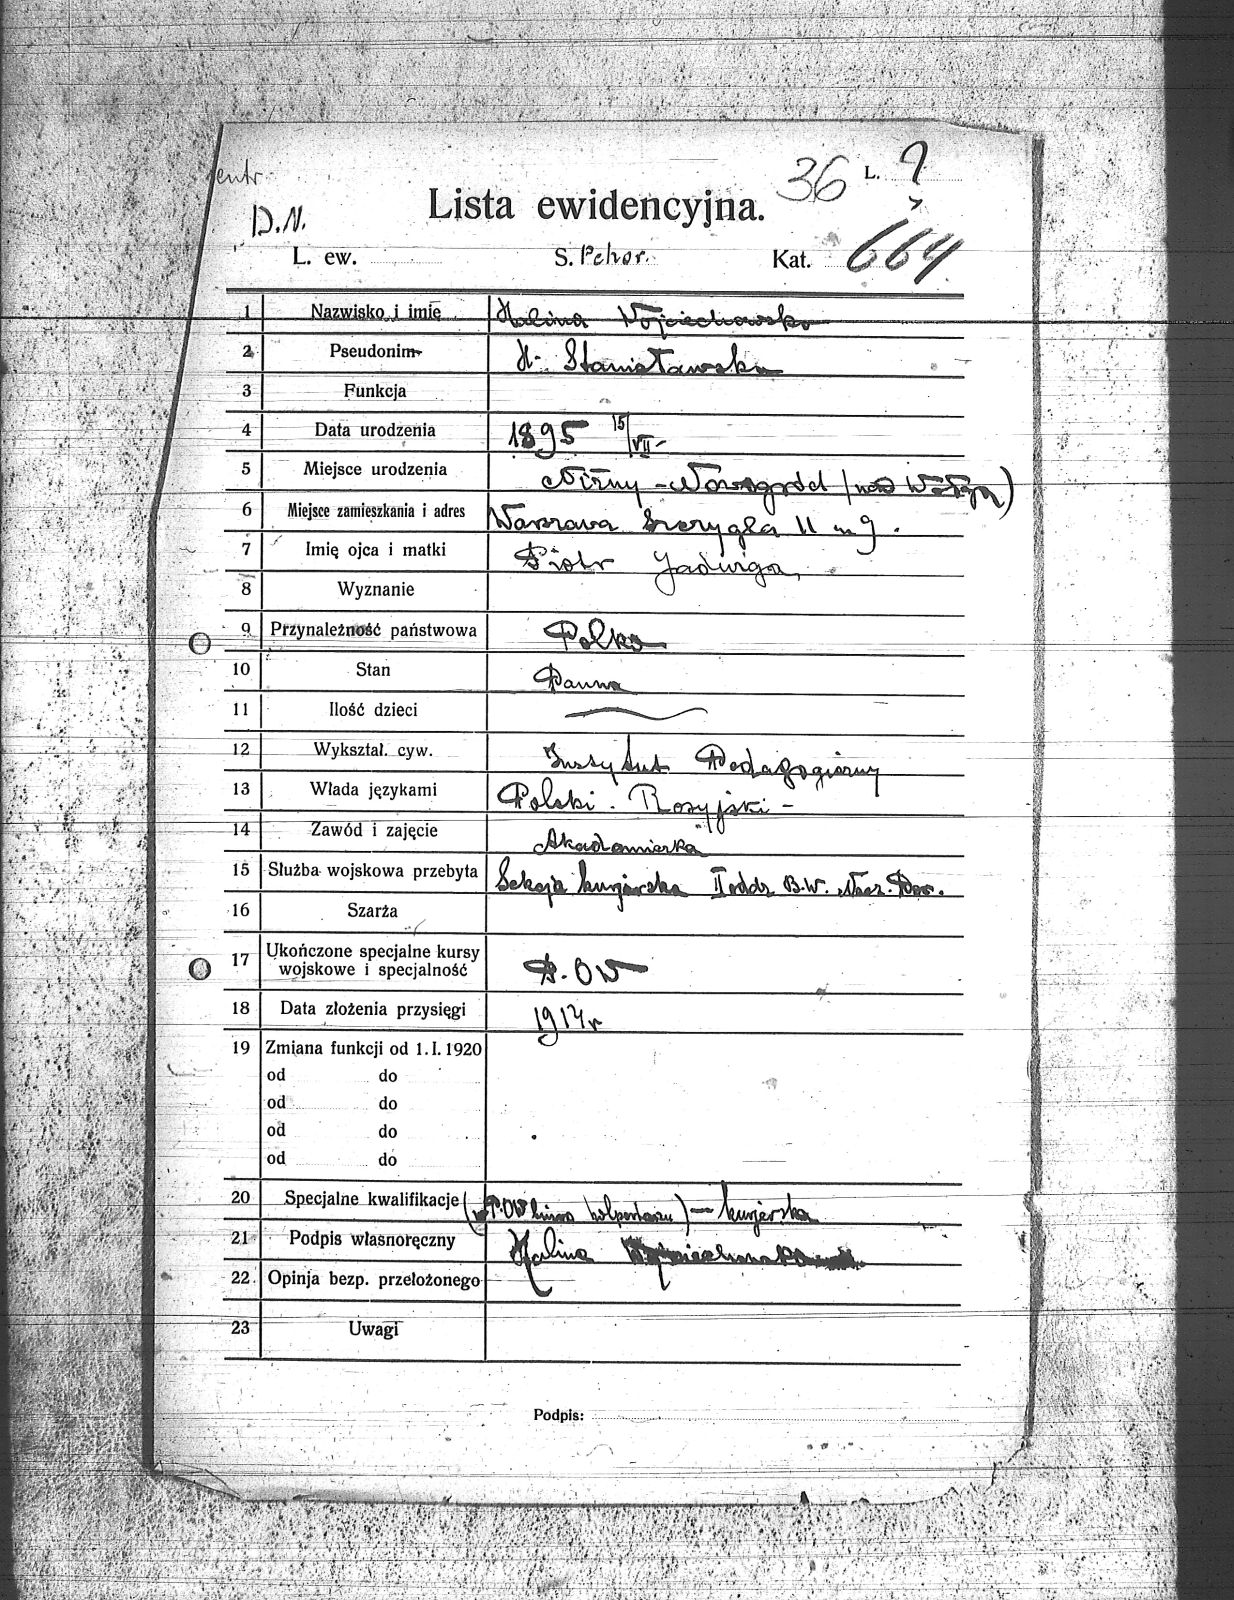 centr
36 L. ?
D.N.
Lista ewidencyjna.
L. ew. S. Pehor. Kat. 664
1 Nazwisko i imię Halina Wojciechowska
2 Pseudonim H. Stanisławska
3 Funkcja
4 Data urodzenia 1895 15/VII-
5 Miejsce urodzenia Niżny-Nowogród (nad Wołgą)
6 Miejsce zamieszkania i adres Warszawa Szczygla 11 m 9.
7 Imię ojca i matki Piotr Jadwiga
8 Wyznanie
9 Przynależność państwowa Polka
10 Stan Panna
11 Ilość dzieci
12 Wykształ. cyw. Instytut Pedagogiczny
13 Włada językami Polski. Rosyjski -
14 Zawód i zajęcie Akademiczka
15 Służba wojskowa przebyta Sekcja kurjerska II oddz B.W. Nacz. Dow.
16 Szarża
17 Ukończone specjalne kursy
wojskowe i specjalność P.OW
18 Data złożenia przysięgi 1917 r
19 Zmiana funkcji od 1. I. 1920
od do
od do
od do
od do
20 Specjalne kwalifikacje (w P.OW kolportażu) — kurjerska
21 Podpis własnoręczny Halina Wojciechowska
22. Opinja bezp. przełożonego
23 Uwagi
Podpis: